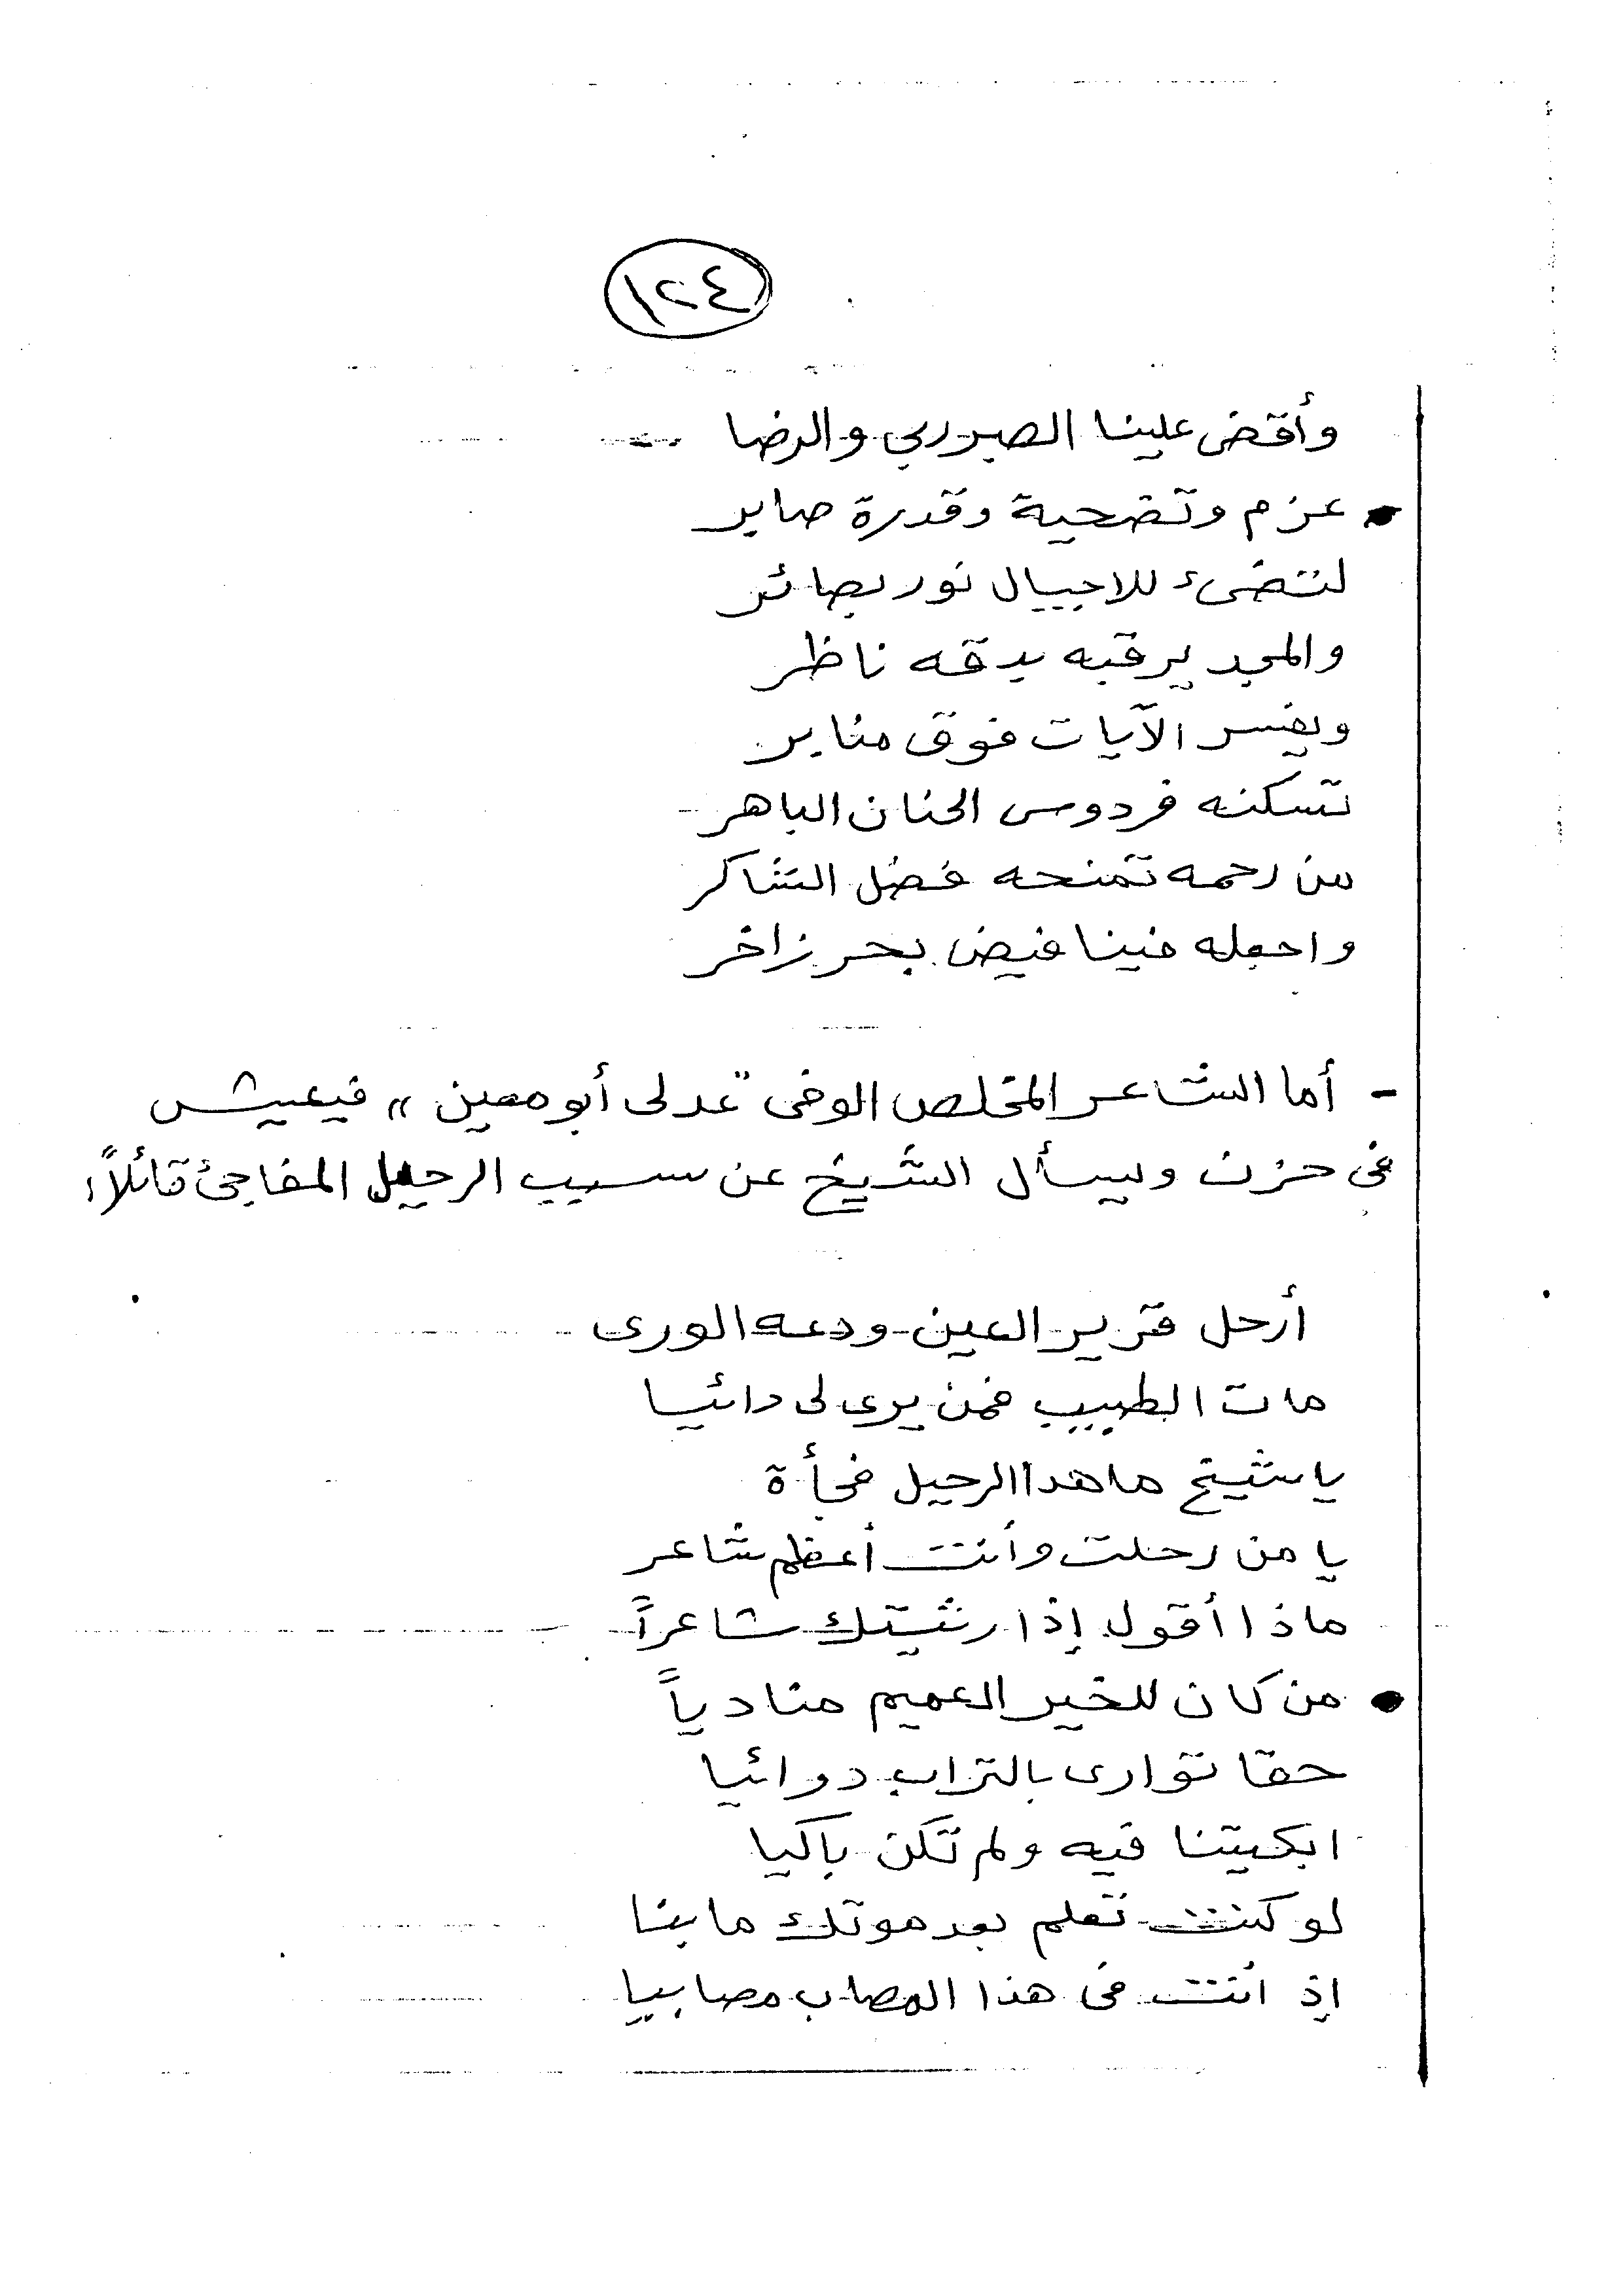 ١٢٤
وأقض علينا الصبر ربي والرضا
عزم وتضحية وقدرة صابر
لتضىء للاجيال نور بصائر
والمجد يرقبه بدقه ناظر
ويفسر الآيات فوق منابر
تسكنه فردوس الجنان الباهر
من رحمه تمنحه فضل الشاكر
واجعله فينا فيض بحر زاخر
- أما الشاعر المخلص الوفى "عدلى أبو معين" فيعيش
فى حزن ويسأل الشيخ عن سبب الرحيل المفاجئ قائلاً:
أرحل قرير العين ودعه الورى
مات الطبيب فمن يرى لى دائيا
يا شيخ ما هدا الرحيل فجأة
يا من رحلت وأنت أعظم شاعر
ماذا أقول إذا رثيتك شاعراً
من كان للخير العميم منادياً
حقا توارى بالتراب دوائيا
ابكيتنا فيه ولم تكن باكيا
لو كنت تعلم بعد موتك ما بنا
إذ أنت فى هذا المصاب مصابيا